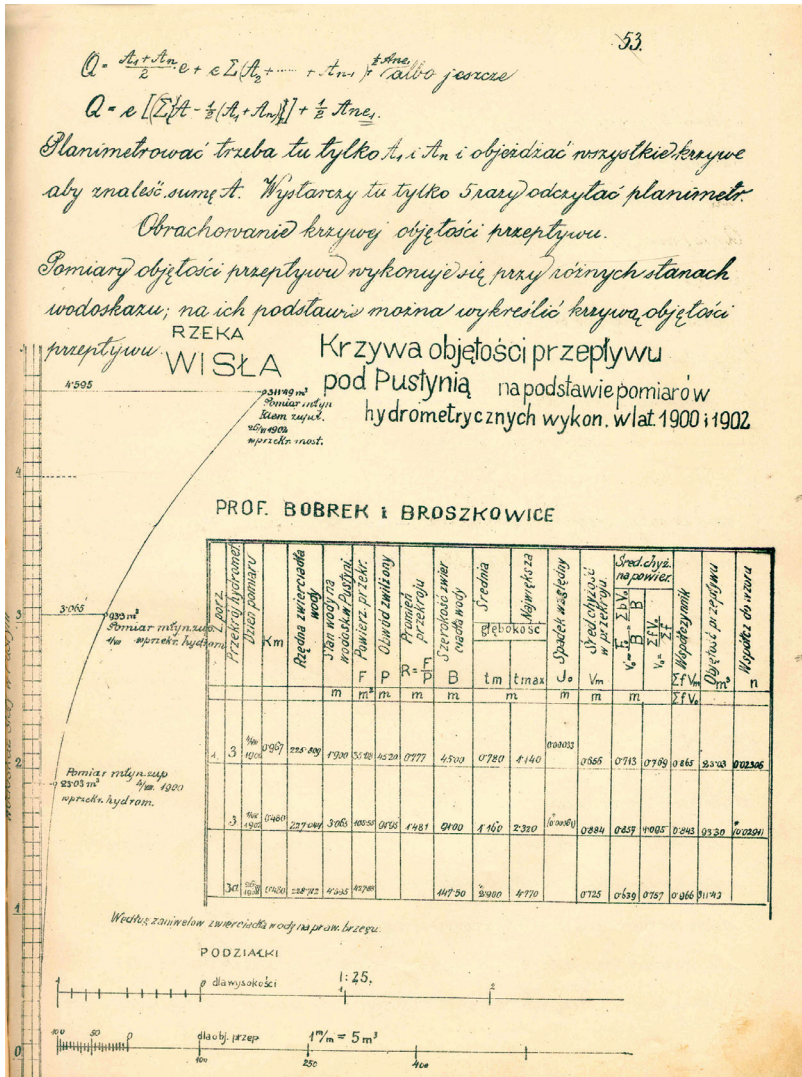 53.
Q = A₁ + Aₙ / 2 · e + e Σ(A₂ + ····· + Aₙ₋₁) + ½ Ane₁ albo jeszcze
Q = e [(Σ{A - ½(A₁ + Aₙ)}] + ½ Ane₁.
Planimetrować trzeba tu tylko A₁ i An i objeżdżać wszystkie krzywe
aby znaleść sumę A. Wystarczy tu tylko 5 razy odczytać planimetr.
Obrachowanie krzywej objętości przepływu.
Pomiary objętości przepływu wykonuje się przy różnych stanach
wodoskazu; na ich podstawie można wykreślić krzywą objętości
przepływu.
RZEKA
WISŁA
Krzywa objętości przepływu
pod Pustynią na podstawie pomiarów
hydrometrycznych wykon. w lat. 1900 i 1902
4·595
311·49 m³
Pomiar młyn
w przekr. most.
4
PROF. BOBREK i BROSZKOWICE
3·065
3
933 m³
Pomiar młyn. zup.
w przekr. hydrom.
2
Pomiar młyn zup
23·03 m³ 4/VIII. 1900
w przekr. hydrom.
1
0
L. porz. | Przekrój hydrometr. | Dzień pomiaru | Km | Rzędna zwierciadła wody | Stan wody na wodosk. w Pustyni | Powierz. przekr. | Obwód zwilżony | Promień przekroju | Szerokość zwierciadła wody | Średnia | Największa | Spadek względny | Śred. chyżość w przekroju | Śred. chyż. na powier. | Współczynnik | Objętość przepływu | Współcz do wzoru
głębokość
F | P | R = F/P | B | tm | tmax | J₀ | Vm | v₀' = F/B = ΣbV₀/B | v₀ = ΣfV₀/Σf | ΣfVm/ΣfV₀ | m³ | n
m | m² | m | m | m | m | m | m | m
1. | 3 | 1900 | 0·967 | 225·809 | 1·900 | 45·20 | 0·777 | 45·00 | 0·780 | 1·140 | 0·655 | 0·713 | 0·769 | 0·865 | 23·03 | 0·02306
3 | 1902 | 0·460 | 3·065 | 91·95 | 1·481 | 91·00 | 1·160 | 2·320 | 0·884 | 0·857 | 1·095 | 0·843 | 93·30
3a | 0·480 | 228·712 | 4·595 | 147·50 | 2·900 | 4·770 | 0·725 | 0·639 | 0·757 | 0·966 | 311·43
Według zaniwelow zwierciadła wody na praw. brzegu.
PODZIAŁKI
1 0 dla wysokości 1:25, 1 2
100 50 0 dla obj. przep 1 m/m = 5 m³
100 250 400